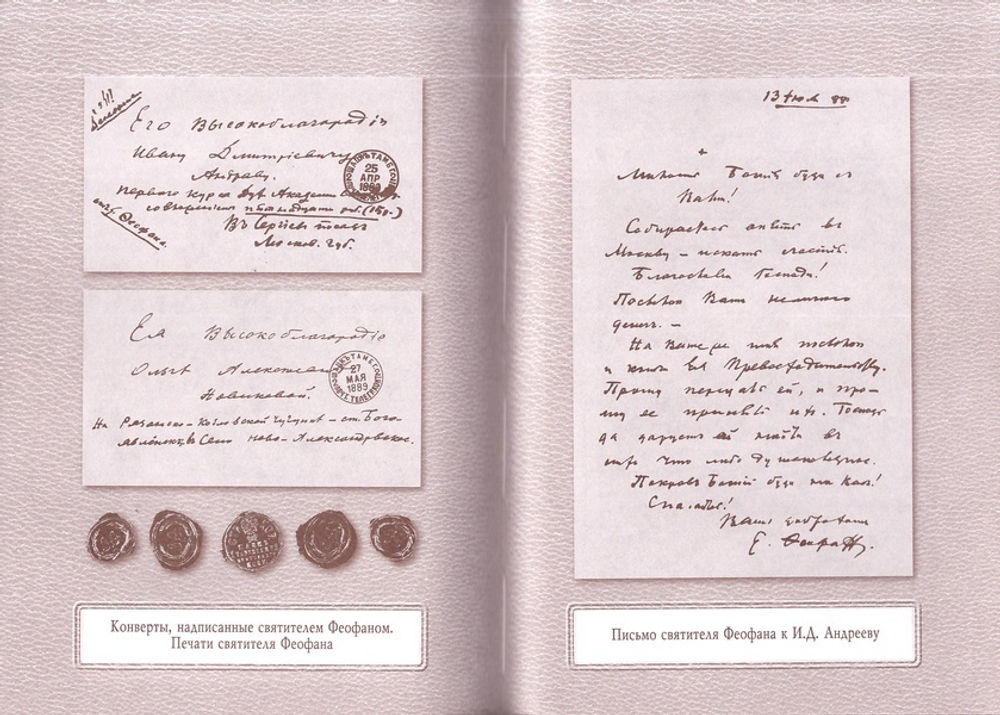 Его Высокоблагородію
Ивану Дмитріевичу
Андрееву.
первого курса Дух. Академіи
пятнадцати руб. (150-)
Въ Сергіев посад
Москов. губ.
Феофана.
25
АПР
1889
Ея Высокоблагородію
Ольге Алексан
Новиковой.
27
МАЯ
1889
На Рязанско-Козловской ст. Бого-
явленскъ Село Ново-Александровское.
Конверты, надписанные святителем Феофаном.
Печати святителя Феофана
13 Іюл 88
+
Милость Божія буди съ
Вами!
Собираетесь опять въ
Москву – искать счастія.
Благослови Господи!
Посылаю Вамъ немного
денег. –
На Ваше же имя посылаю
и книги Ея Превосходительству.
Прошу передать ей, и про-
шу ее принять их. Господь
да даруетъ ей найти въ
что либо душеполезное.
Покровъ Божій буди на Вас!
Спасайтесь!
Вашъ доброхотъ
Е. Феофанъ.
Письмо святителя Феофана к И.Д. Андрееву